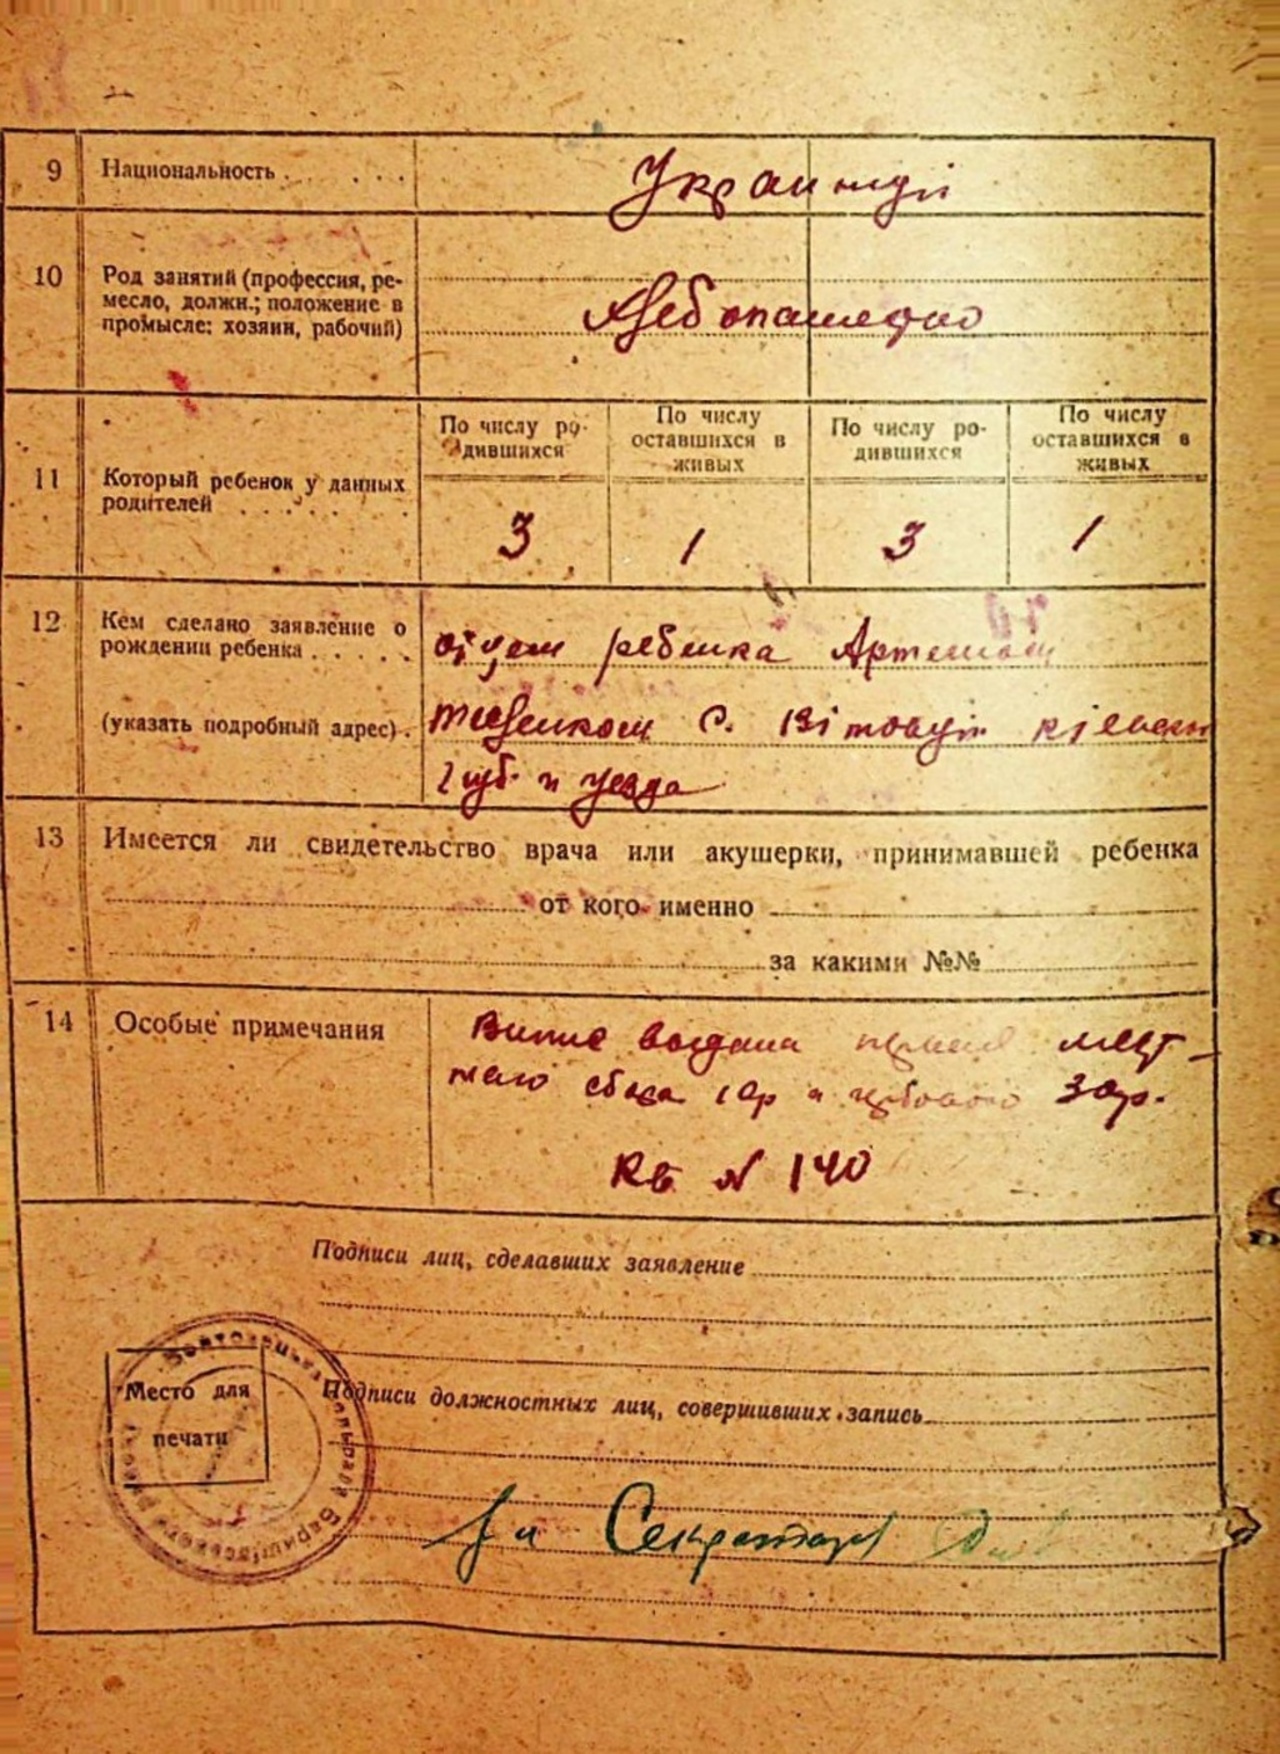 9 Национальность . . . . Украинцi
10 Род занятий (профессия, ре-
месло, должн.; положение в
промысле: хозяин, рабочий)
Хлебопашество
11 Который ребенок у данных
родителей . . . . . .
По числу ро-
дившихся
По числу
оставшихся в
живых
По числу ро-
дившихся
По числу
оставшихся в
живых
3 1 3 1
12 Кем сделано заявление о
рождении ребенка . . . . .
(указать подробный адрес) .
отцем ребенка Артемом
с.
губ. и уезда
13 Имеется ли свидетельство врача или акушерки, принимавшей ребенка
от кого именно
за какими №№
14 Особые примечания
Випис
сбора 1 0р и 30р.
Кв N 140
Подписи лиц, сделавших заявление
Место для
печати
Подписи должностных лиц, совершивших запись
За Секретаря